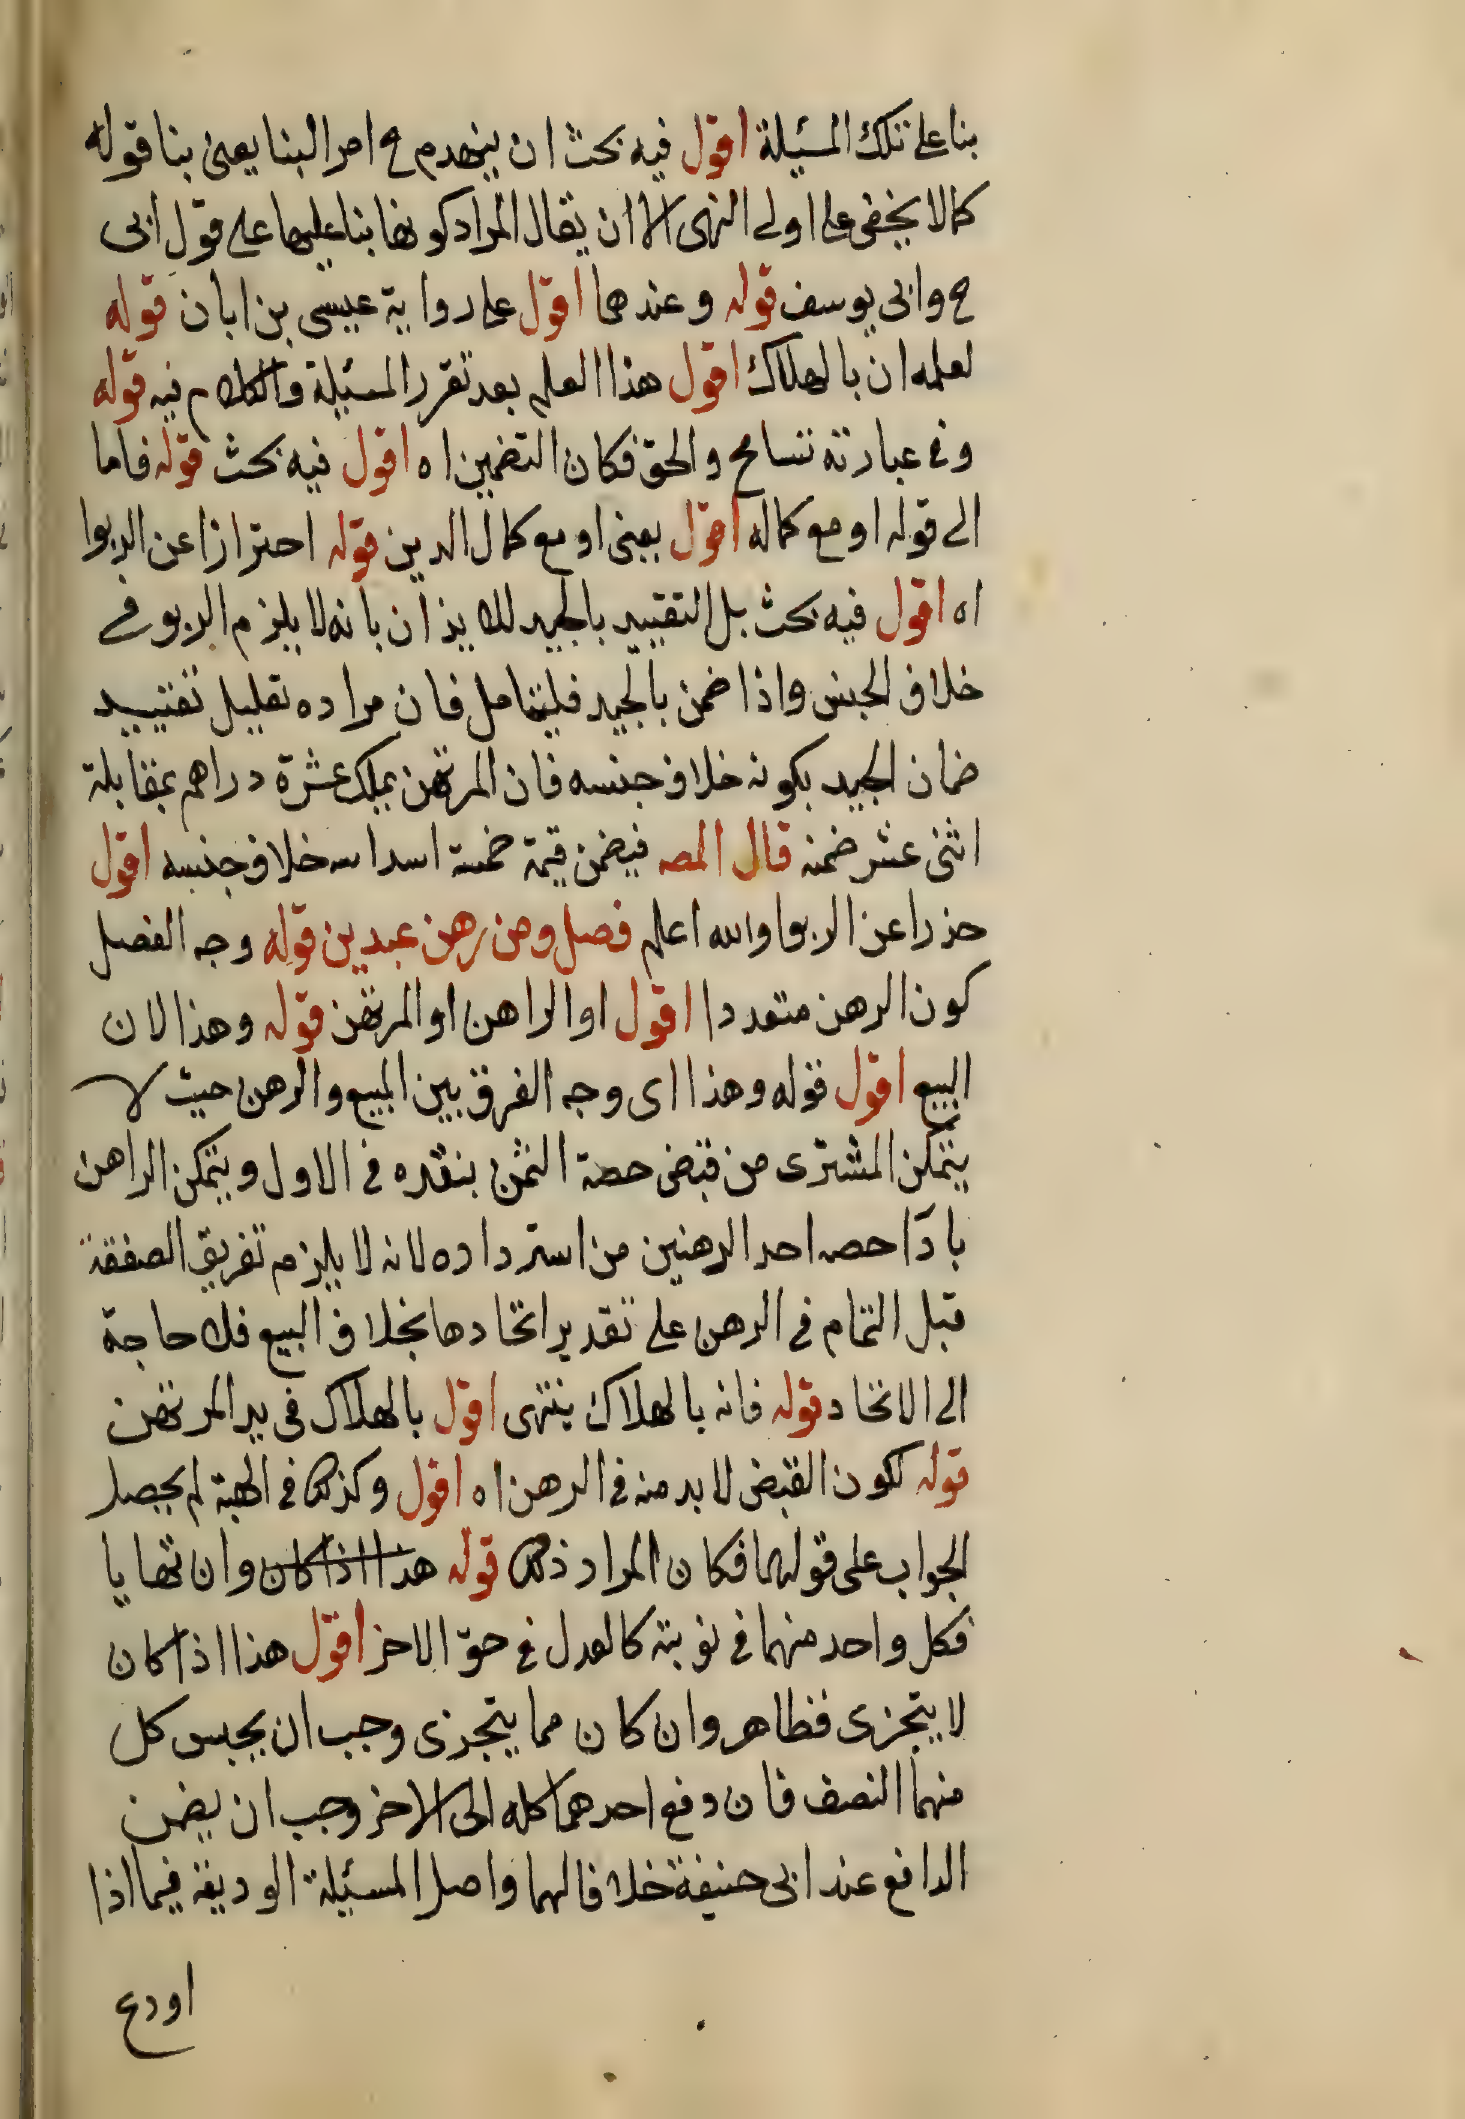 بنا على تلك المسئلة اقول فيه بحث ان ينهدم ح امر البنا يعنى بنا قوله
كما لا يخفى على اولى النهى الا ان يقال المراد كونها بنا عليها على قول ابى
ح وابى يوسف قوله وعندهما اقول على رواية عيسى بن ابان قوله
لعلمه ان بالهلاك اقول هذا العلم بعد تقرر المسئلة والكلام فيه قوله
وفى عبارته تسامح والحق فكان التضمين اه اقول فيه بحث قوله فاما
الى قوله او مع كماله اقول يعنى او مع كمال الدين قوله احترازا عن الربوا
اه اقول فيه بحث بل التقييد بالجيد للايذان بانه لا يلزم الربو فى
خلاف الجنس واذا ضمن بالجيد فليتامل فان مراده تعليل تقييد
ضمان الجيد بكونه خلاف جنسه فان المرتهن يملك عشرة دراهم بمقابلة
اثنى عشر ضمنه قال المصه فيضمن قيمة خمسة اسداسه خلاف جنسه اقول
حذرا عن الربوا والله اعلم فصل ومن رهن عبدين قوله وجه الفصل
كون الرهن متعددا اقول او الراهن او المرتهن قوله وهذا لان
البيع اقول قوله وهذا اى وجه الفرق بين المبيع والرهن حيث لا
يتمكن المشترى من قبض حصة الثمن بنقده فى الاول ويتمكن الراهن
بادآ حصه احد الرهنين من استرداده لانه لا يلزم تفريق الصفقة
قبل التمام فى الرهن على تقدير اتحادها بخلاف البيع فلا حاجة
الى الاتحاد قوله فانه بالهلاك ينتهى اقول بالهلاك فى يد المرتهن
قوله لكون القبض لا بد منه فى الرهن اه اقول وكذلك فى الهبة لم يحصل
الجواب على قولهما فكان المراد ذلك قوله هذا اذا كان وان تهايا
فكل واحد منهما فى نوبته كالعدل فى حق الاخر اقول هذا اذا كان
لا يتجزى فظاهر وان كان مما يتجزى وجب ان يحبس كل
منهما النصف فان دفع احدهما كله الى الاخر وجب ان يضمن
الدافع عند ابى حنيفة خلافا لهما واصل المسئيلة الوديعة فيما اذا
اودع